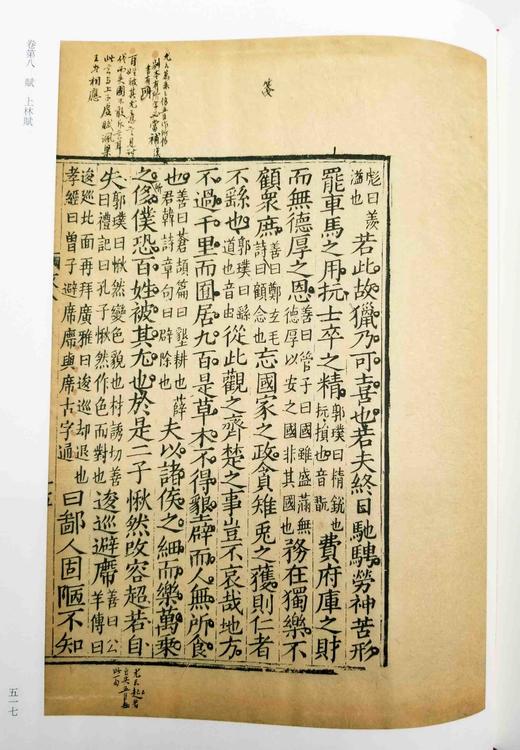 卷第八 賦 上林賦
五一七
彪也羨溢也若此故獵乃可喜也若夫終日馳騁勞神苦形
罷車馬之用抏士卒之精郭璞曰精銳也抏損也音翫費府庫之財
而無德厚之恩善曰管子曰國雖盛滿無德厚以安之國非其國也務在獨樂不
顧衆庶善曰鄭玄毛詩曰顧念也忘國家之政貪雉兔之獲則仁者
不繇也郭璞曰繇道也音由從此觀之齊楚之事豈不哀哉地方
不過千里而囿居九百是草木不得墾辟而人無所食
也善曰蒼頡篇曰墾耕也薛君韓詩章句曰辟除也夫以諸侯之細而樂萬乘
之侈僕恐百姓被其尤也於是二子愀然改容超若自
失郭璞曰愀然變色貌也材誘切善曰禮記曰孔子愀然作色而對也逡巡避廗善曰公羊傳曰
逡巡北面再拜廣雅曰逡巡却退也孝經曰曾子避席廗與席古字通曰鄙人固陋不知